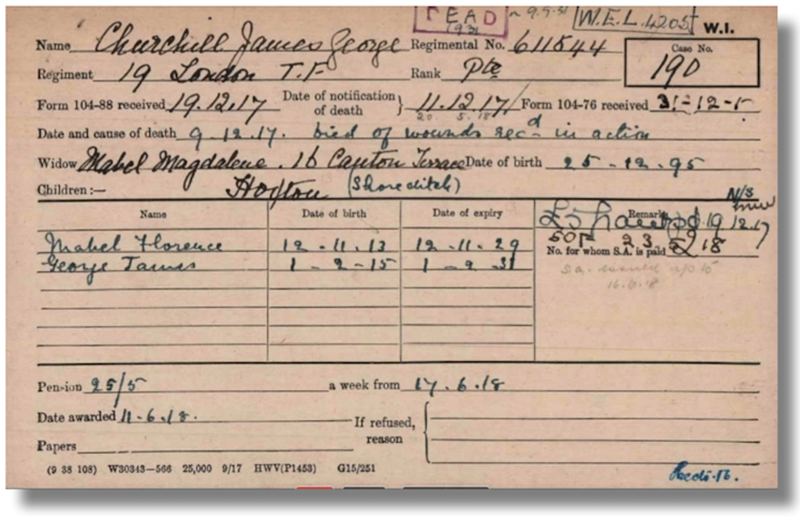 DEAD 9.9.31 W.E.L. 4205 W.I.
1931
Name Churchill James George Regimental No. 611544 Case No.
Regiment 19 London T.F Rank Pte 190
Form 104-88 received 19.12.17 Date of notification of death } 11.12.17 Form 104-76 received 31-12-1
20 5.18
Date and cause of death 9.12.17. Died of wounds recd in action
Widow Mabel Magdalene. 16 Canton Terrace Date of birth 25-12-95
Children:— Hoxton (Shoreditch)
N/S
Name Date of birth Date of expiry Remarks 19/12.17
Mabel Florence 12-11-13 12-11-29 23 5 18
George James 1-2-15 1-2-31 No. for whom S.A. is paid 2
S.A. issued
16.6.18
Pension 25/5 a week from 17.6.18
Date awarded 11.6.18. If refused,
Papers reason
(9 38 108) W30343—566 25,000 9/17 HWV(P1453) G15/251